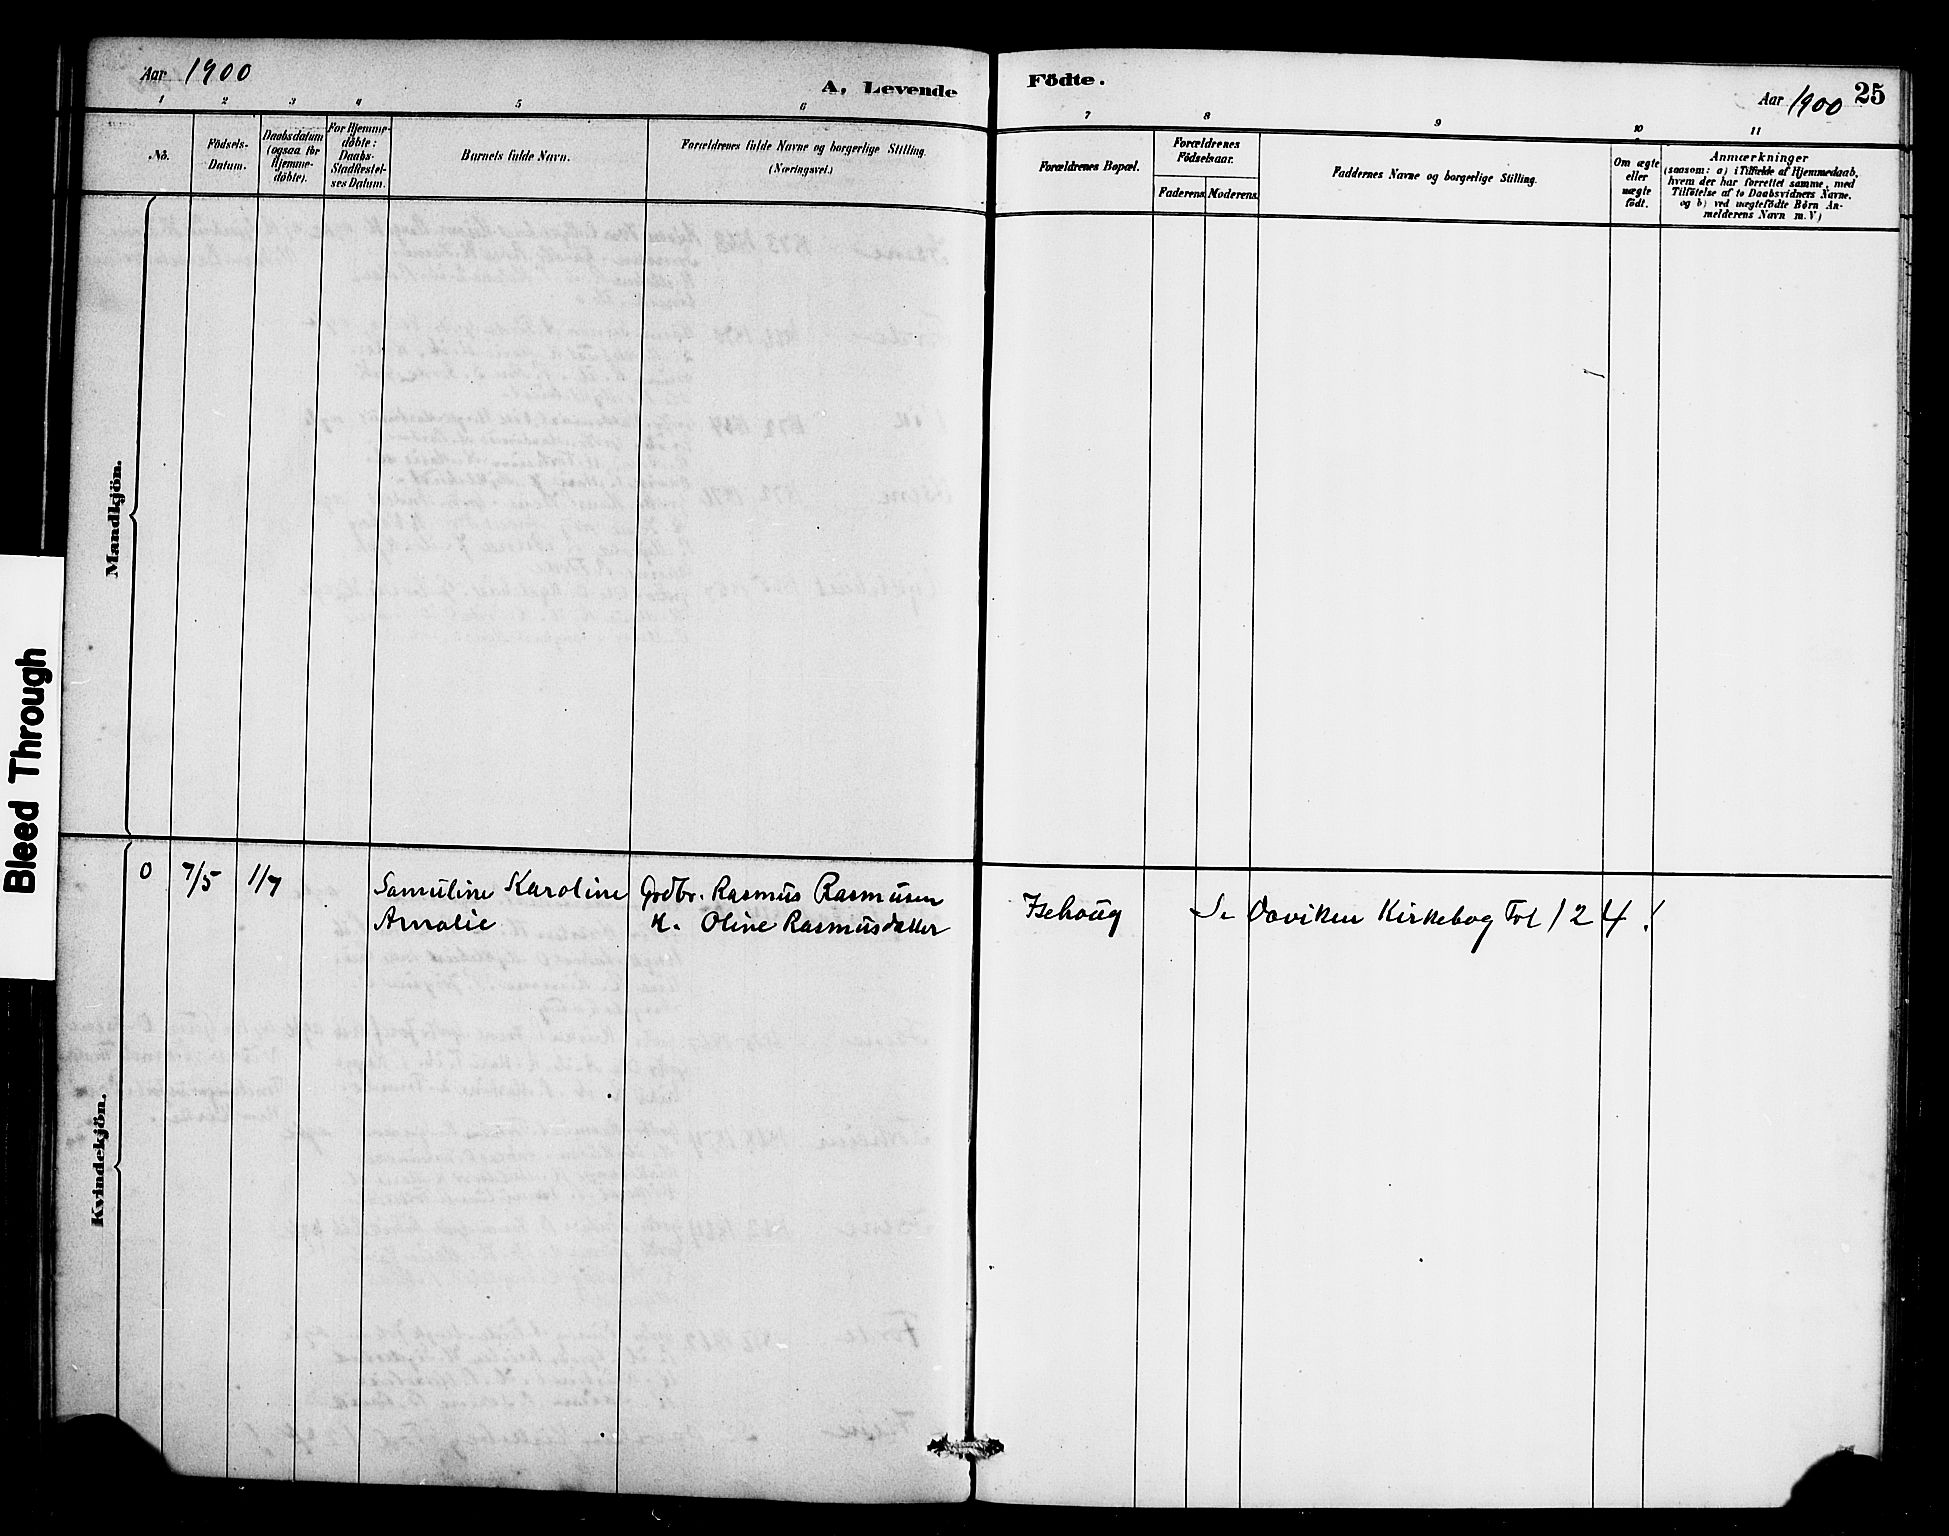 Aar 1900
A. Levende Födte.
Aar 1900 25
1 2 3 4 5 6 7 8 9 10 11
Nö.
Födsels-
Datum.
Daabsdatum
(ogsaa for
Hjemme-
döbte).
For Hjemme-
döbte:
Daabs-
Stadfæstel-
ses Datum.
Barnets fulde Navn.
Forældrenes fulde Navne og borgerlige Stilling.
(Næringsvei.)
Forældrenes Bopæl.
Forældrenes
Födselsaar.
Faderens. Moderens.
Faddernes Navne og borgerlige Stilling.
Om ægte
eller
uægte
födt.
Anmærkninger
(saasom: a) i Tilfælde af Hjemmedaab,
hvem der har forrettet samme, med
Tilföielse af to Daabsvidners Navne,
og b) ved uægtefödte Börn An-
melderens Navn m. V.)
Mandkjön.
Bleed Through
Kvindekjön.
0 7/5 1/7 Samuline Karoline Grdbr. Rasmus Rasmusen
Amalie H. Oline Rasmusdatter
Isehoug Se Daviken Kirkebog Fol 124!